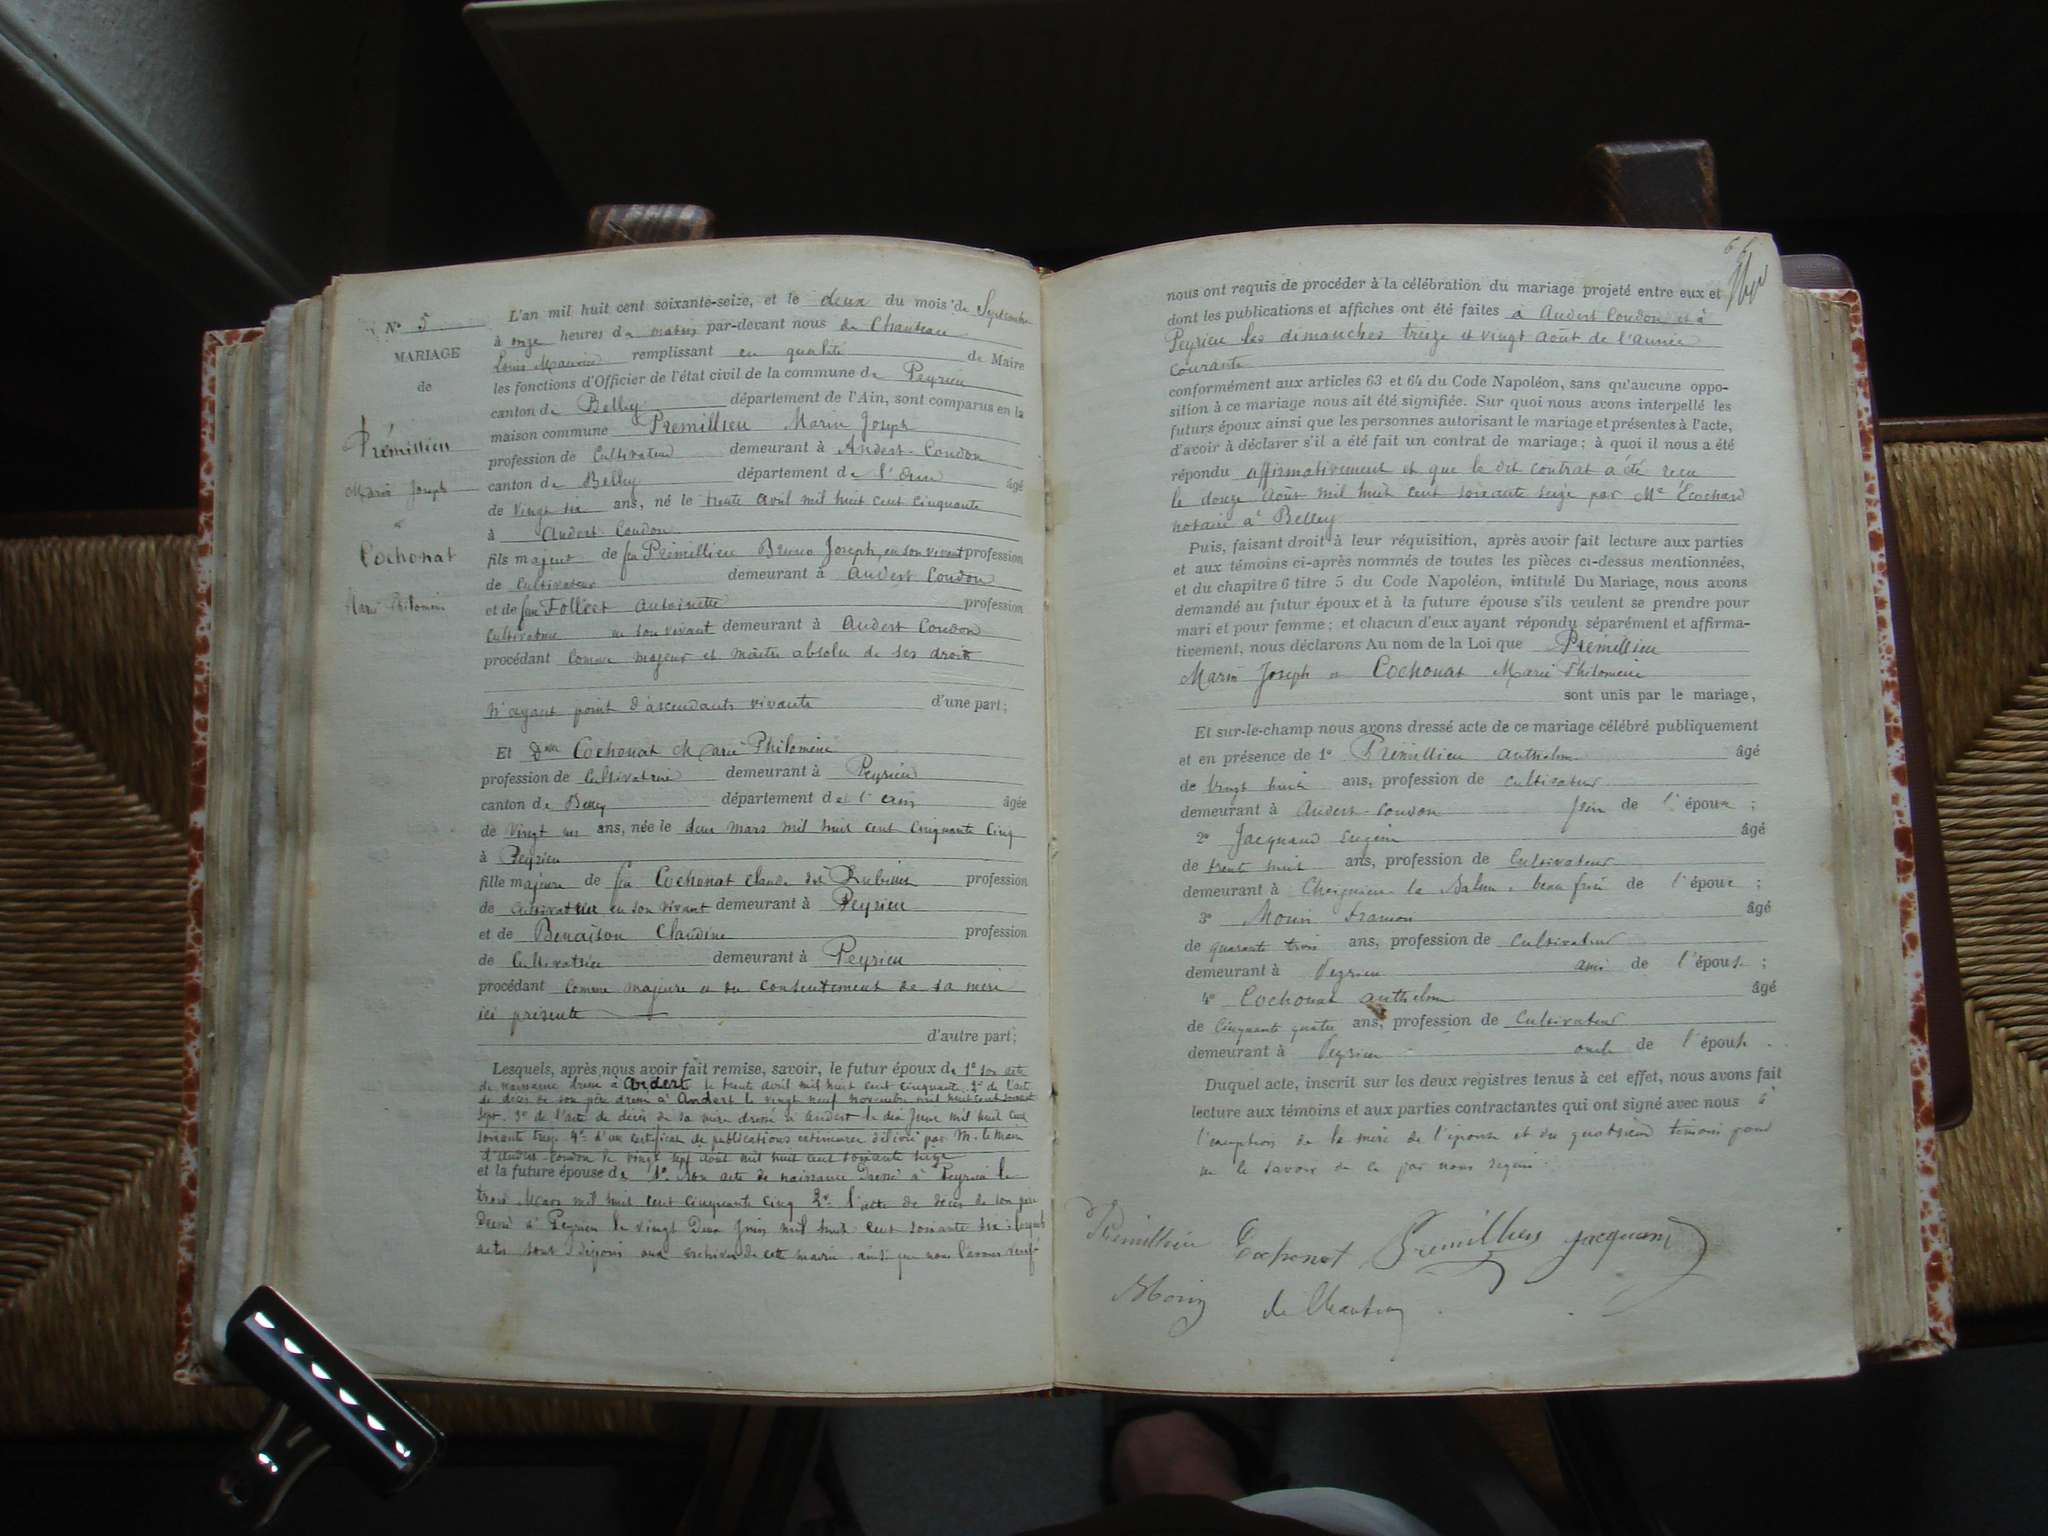 N° 5
MARIAGE
de
Prémillieu
Marin Joseph
Cochonat
Marie Philomène
L'an mil huit cent soixante-seize, et le deux du mois de Septembre
à onze heures du matin par-devant nous de Chauteau
Louis Maurice remplissant en qualité de Maire
les fonctions d'Officier de l'état civil de la commune de Peyrieu
canton de Belley département de l'Ain, sont comparus en la
maison commune Prémillieu Marin Joseph
profession de Cultivateur demeurant à Andert-Condon
canton de Belley département de l'Ain âgé
de vingt six ans, né le trente avril mil huit cent cinquante
à Andert Condon
fils majeur de feu Prémillieu Bruno Joseph, en son vivant profession
de Cultivateur demeurant à Andert Condon
et de feue Follect Antoinette profession
Cultivatrice en son vivant demeurant à Andert Condon
procédant comme majeur et maître absolu de ses droits
n'ayant point d'ascendants vivants d'une part;
Et Dlle Cochonat Marie Philomène
profession de Cultivatrice demeurant à Peyrieu
canton de Belley département de l'Ain âgée
de vingt un ans, née le deux mars mil huit cent cinquante cinq
à Peyrieu
fille majeure de feu Cochonat Claude dit profession
de cultivateur en son vivant demeurant à Peyrieu
et de Benaison Claudine profession
de Cultivatrice demeurant à Peyrieu
procédant comme majeure et du consentement de sa mère
ici présente
d'autre part;
Lesquels, après nous avoir fait remise, savoir, le futur époux de 1° son acte
de naissance dressé à Andert le trente avril mil huit cent cinquante 2° de l'acte
de décès de son père dressé à Andert le vingt neuf novembre mil huit cent soixante
sept. 3° de l'acte de décès de sa mère dressé à Andert le dix mil huit cent
soixante treize 4° d'un certificat de publications délivré par M. le Maire
d'Andert Condon le vingt sept août mil huit cent soixante seize
et la future épouse de 1° son acte de naissance dressé à Peyrieu le
trois Mars mil huit cent cinquante cinq 2° l'acte de décès de son père
dressé à Peyrieu le vingt deux Juin mil huit cent soixante six; lesquels
actes sont déposés aux archives de cette mairie ainsi que nous l'avons vérifié
nous ont requis de procéder à la célébration du mariage projeté entre eux et
dont les publications et affiches ont été faites à Andert Condon et à
Peyrieu les dimanches treize et vingt août de l'année
courante
conformément aux articles 63 et 64 du Code Napoléon, sans qu'aucune oppo-
sition à ce mariage nous ait été signifiée. Sur quoi nous avons interpellé les
futurs époux ainsi que les personnes autorisant le mariage et présentes à l'acte,
d'avoir à déclarer s'il a été fait un contrat de mariage; à quoi il nous a été
répondu affirmativement et que le dit contrat a été reçu
le douze août mil huit cent soixante seize par Me Écochard
notaire à Belley
Puis, faisant droit à leur réquisition, après avoir fait lecture aux parties
et aux témoins ci-après nommés de toutes les pièces ci-dessus mentionnées,
et du chapitre 6 titre 5 du Code Napoléon, intitulé Du Mariage, nous avons
demandé au futur époux et à la future épouse s'ils veulent se prendre pour
mari et pour femme; et chacun d'eux ayant répondu séparément et affirma-
tivement, nous déclarons Au nom de la Loi que Prémillieu
Marin Joseph et Cochonat Marie Philomène
sont unis par le mariage,
Et sur-le-champ nous avons dressé acte de ce mariage célébré publiquement
et en présence de 1° Prémillieu Anthelme âgé
de vingt huit ans, profession de cultivateur
demeurant à Andert-Condon frère de l'époux ;
2° Jacquand Eugène âgé
de trente huit ans, profession de Cultivateur
demeurant à la Balme beau frère de l'époux ;
3° Morin âgé
de quarante trois ans, profession de Cultivateur
demeurant à Peyrieu ami de l'épouse ;
4° Cochonat Anthelme âgé
de Cinquante quatre ans, profession de Cultivateur
demeurant à Peyrieu oncle de l'épouse.
Duquel acte, inscrit sur les deux registres tenus à cet effet, nous avons fait
lecture aux témoins et aux parties contractantes qui ont signé avec nous à
l'exception de la mère de l'épouse et du quatrième témoin pour
ne le savoir de ce par nous requis.
Prémillieu Cochonat Prémillieu Jacquand
Morin de Chauteau